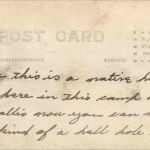 POST CARD
CORRESPONDENCE ADDRESS
this is a native h
here in this camp
allis now you can s
kind of a hell hole